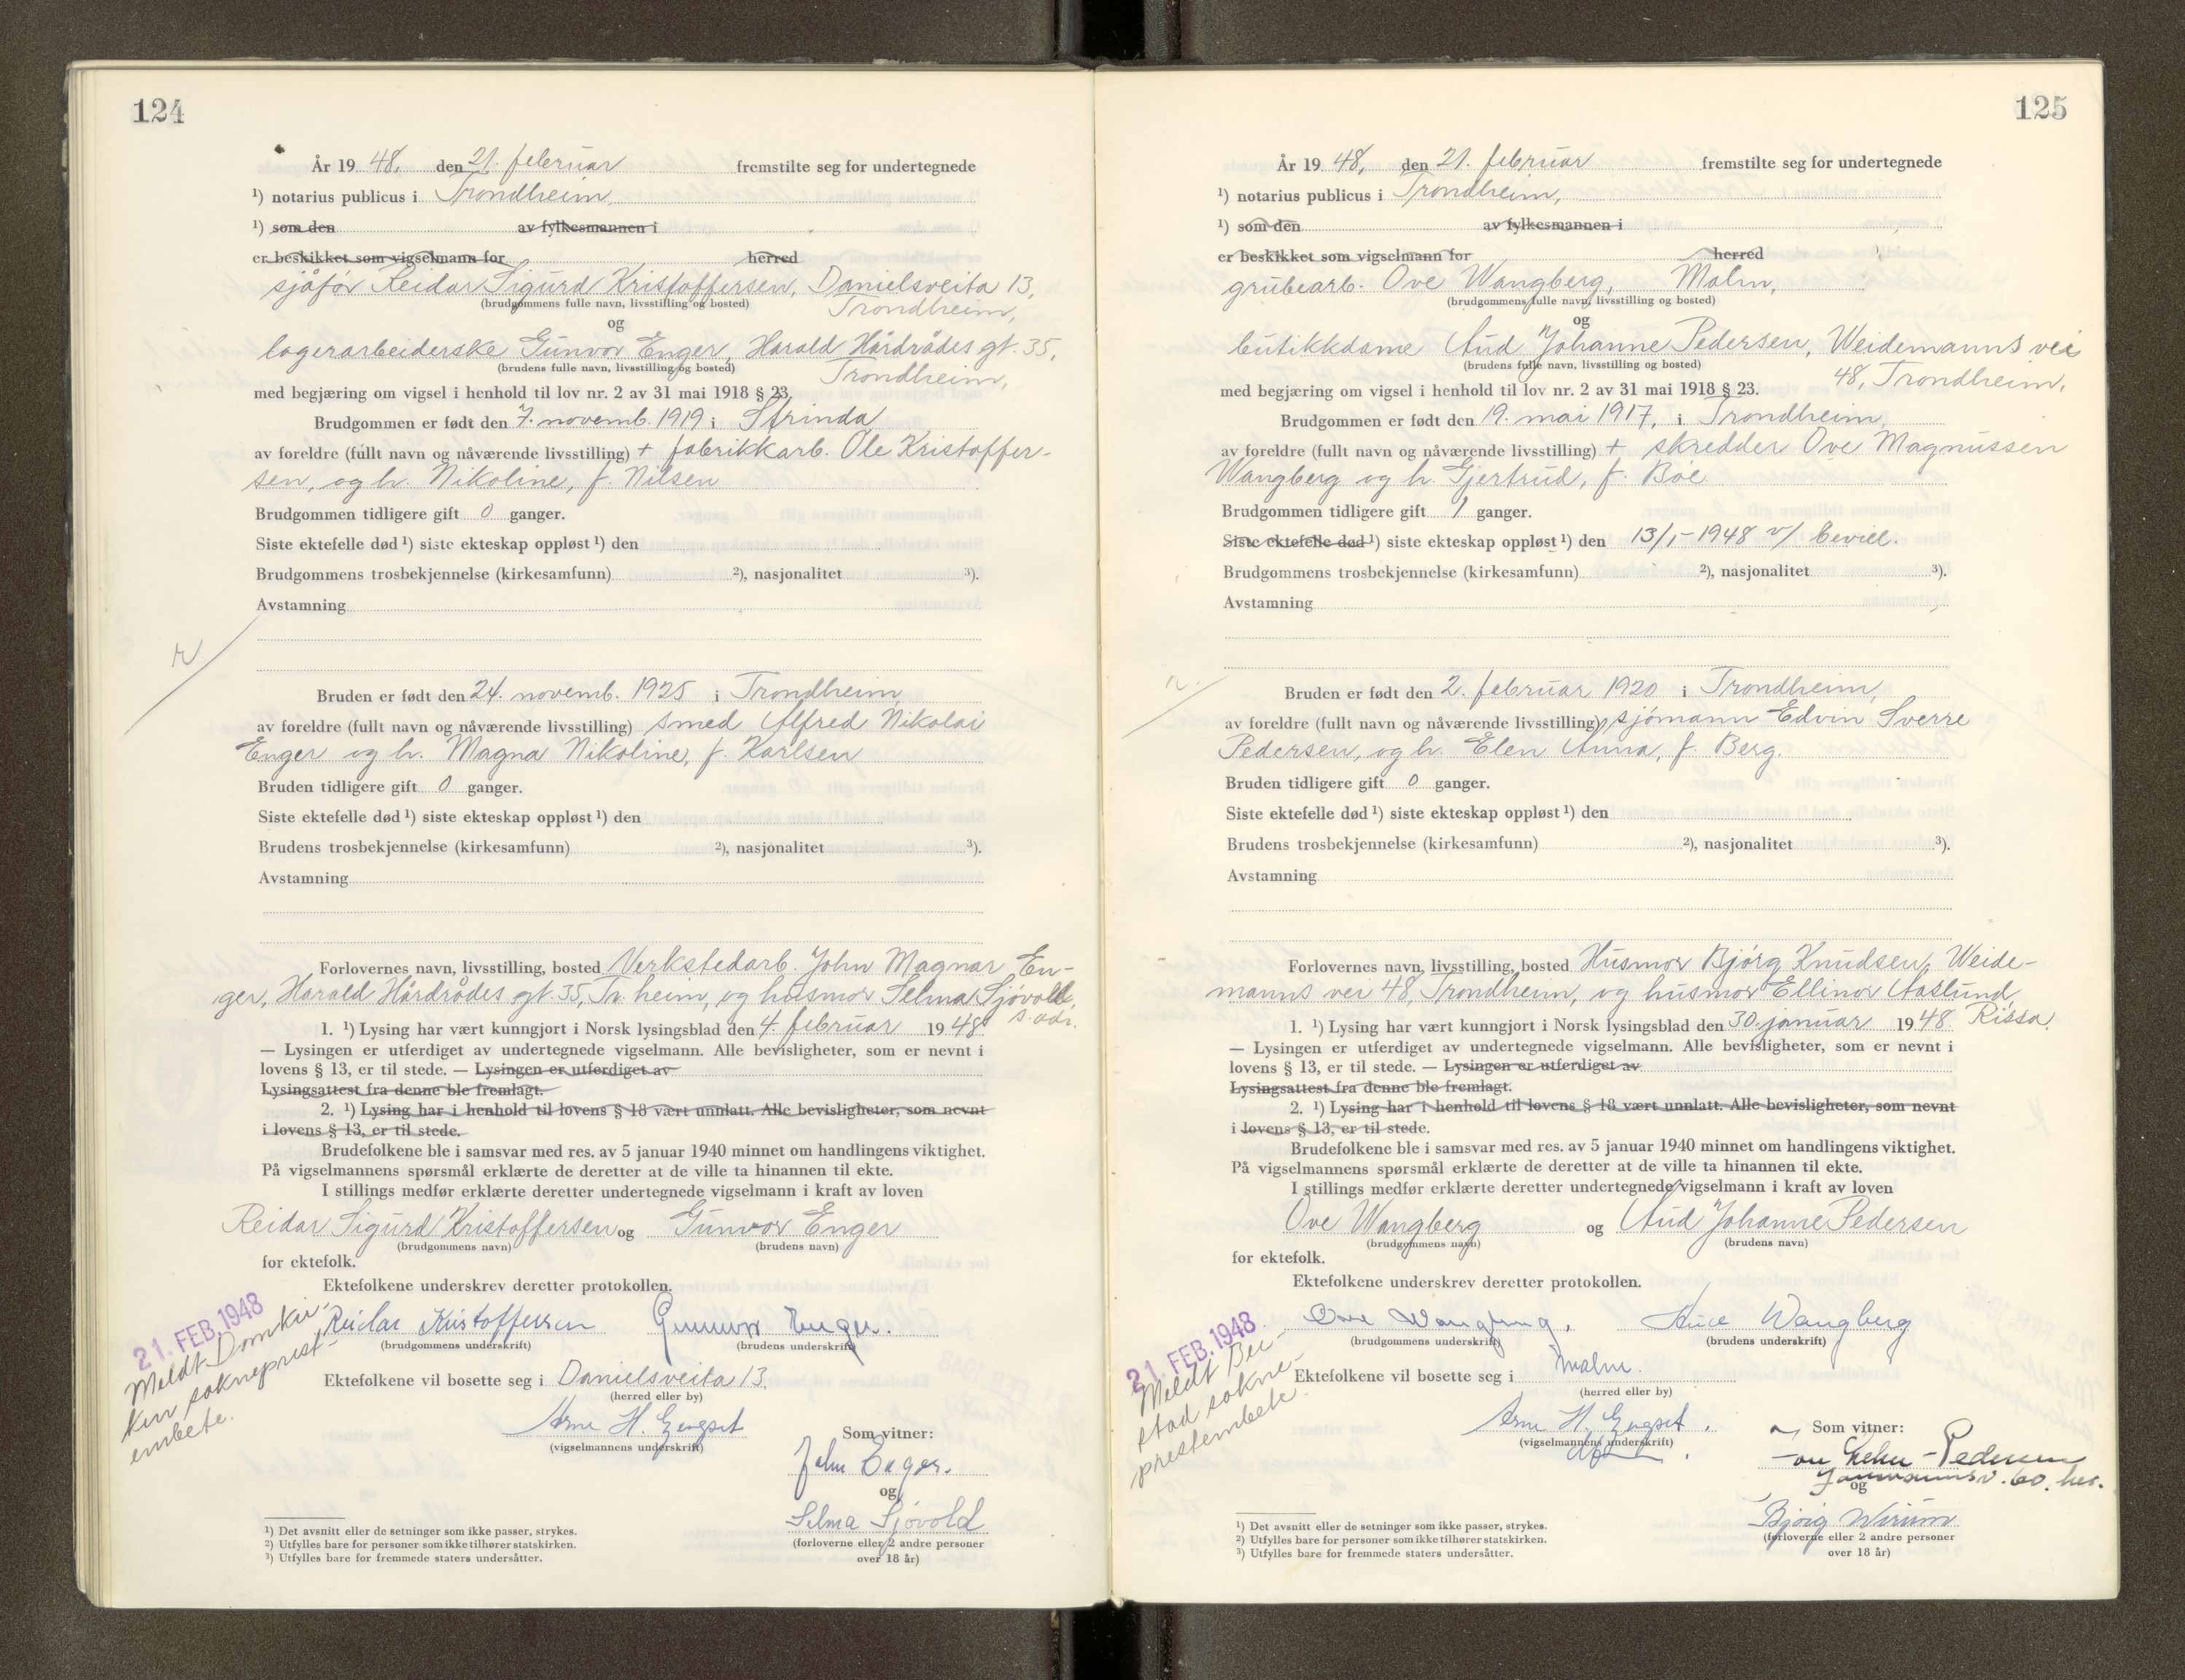 124
År 19 48, den 21. februar fremstilte seg for undertegnede
¹) notarius publicus i Trondheim,
¹) som den av fylkesmannen i
er beskikket som vigselmann for herred
sjåfør Reidar Sigurd Kristoffersen, Danielsveita 13,
(brudgommens fulle navn, livsstilling og bosted)
Trondheim,
og
lagerarbeiderske Gunvor Enger, Harald Hårdrådes gt. 35,
(brudens fulle navn, livsstilling og bosted)
Trondheim,
med begjæring om vigsel i henhold til lov nr. 2 av 31 mai 1918 § 23.
Brudgommen er født den 7. novemb. 1919 i Strinda
av foreldre (fullt navn og nåværende livsstilling) + fabrikkarb. Ole Kristoffer-
sen, og h. Nikoline, f. Nilsen
Brudgommen tidligere gift 0 ganger.
Siste ektefelle død ¹) siste ekteskap oppløst ¹) den
Brudgommens trosbekjennelse (kirkesamfunn) ²), nasjonalitet ³).
Avstamning
Bruden er født den 24. novemb. 1925 i Trondheim,
av foreldre (fullt navn og nåværende livsstilling) smed Alfred Nikolai
Enger og h. Magna Nikoline, f. Karlsen
Bruden tidligere gift 0 ganger.
Siste ektefelle død ¹) siste ekteskap oppløst ¹) den
Brudens trosbekjennelse (kirkesamfunn) ²), nasjonalitet ³).
Avstamning
Forlovernes navn, livsstilling, bosted Verkstedarb. John Magnar En-
ger, Harald Hårdrådes gt. 35, Tr.heim, og husmor Selma Sjøvold,
s. adr.
1. ¹) Lysing har vært kunngjort i Norsk lysingsblad den 4. februar 1948
— Lysingen er utferdiget av undertegnede vigselmann. Alle bevisligheter, som er nevnt i
lovens § 13, er til stede. — Lysingen er utferdiget av
Lysingsattest fra denne ble fremlagt.
2. ¹) Lysing har i henhold til lovens § 18 vært unnlatt. Alle bevisligheter, som nevnt
i lovens § 13, er til stede.
Brudefolkene ble i samsvar med res. av 5 januar 1940 minnet om handlingens viktighet.
På vigselmannens spørsmål erklærte de deretter at de ville ta hinannen til ekte.
I stillings medfør erklærte deretter undertegnede vigselmann i kraft av loven
Reidar Sigurd Kristoffersen og Gunvor Enger
(brudgommens navn) (brudens navn)
for ektefolk.
Ektefolkene underskrev deretter protokollen.
Reidar Kristoffersen Gunvor Enger.
(brudgommens underskrift) (brudens underskrift)
21. FEB. 1948
Meldt Domkir-
ken sokneprest-
embete.
Ektefolkene vil bosette seg i Danielsveita 13.
(herred eller by)
Arne H.
(vigselmannens underskrift)
Som vitner:
John Enger.
og
Selma Sjøvold
(forloverne eller 2 andre personer
over 18 år)
¹) Det avsnitt eller de setninger som ikke passer, strykes.
²) Utfylles bare for personer som ikke tilhører statskirken.
³) Utfylles bare for fremmede staters undersåtter.
125
År 19 48, den 21. februar fremstilte seg for undertegnede
¹) notarius publicus i Trondheim,
¹) som den av fylkesmannen i
er beskikket som vigselmann for herred
grubearb. Ove Wangberg, Malm,
(brudgommens fulle navn, livsstilling og bosted)
og
butikkdame Aud Johanne Pedersen, Weidemanns vei
(brudens fulle navn, livsstilling og bosted)
48, Trondheim,
med begjæring om vigsel i henhold til lov nr. 2 av 31 mai 1918 § 23.
Brudgommen er født den 19. mai 1917, i Trondheim,
av foreldre (fullt navn og nåværende livsstilling) + skredder Ove Magnussen
Wangberg og h. Gjertrud, f. Bøe
Brudgommen tidligere gift 1 ganger.
Siste ektefelle død ¹) siste ekteskap oppløst ¹) den 13/1-1948 v/ bevill.
Brudgommens trosbekjennelse (kirkesamfunn) ²), nasjonalitet ³).
Avstamning
Bruden er født den 2. februar 1920 i Trondheim,
av foreldre (fullt navn og nåværende livsstilling) sjømann Edvin Sverre
Pedersen, og h. Elen Anna, f. Berg.
Bruden tidligere gift 0 ganger.
Siste ektefelle død ¹) siste ekteskap oppløst ¹) den
Brudens trosbekjennelse (kirkesamfunn) ²), nasjonalitet ³).
Avstamning
Forlovernes navn, livsstilling, bosted Husmor Bjørg Knudsen, Weide-
manns vei 48, Trondheim, og husmor Ellinor Aaslund,
Rissa.
1. ¹) Lysing har vært kunngjort i Norsk lysingsblad den 30. januar 1948
— Lysingen er utferdiget av undertegnede vigselmann. Alle bevisligheter, som er nevnt i
lovens § 13, er til stede. — Lysingen er utferdiget av
Lysingsattest fra denne ble fremlagt.
2. ¹) Lysing har i henhold til lovens § 18 vært unnlatt. Alle bevisligheter, som nevnt
i lovens § 13, er til stede.
Brudefolkene ble i samsvar med res. av 5 januar 1940 minnet om handlingens viktighet.
På vigselmannens spørsmål erklærte de deretter at de ville ta hinannen til ekte.
I stillings medfør erklærte deretter undertegnede vigselmann i kraft av loven
Ove Wangberg og Aud Johanne Pedersen
(brudgommens navn) (brudens navn)
for ektefolk.
Ektefolkene underskrev deretter protokollen.
Ove Wangberg. Wangberg
(brudgommens underskrift) (brudens underskrift)
21. FEB. 1948
Meldt Ber-
stad sokne-
prestembete.
Ektefolkene vil bosette seg i Malm.
(herred eller by)
Arne H.
(vigselmannens underskrift)
Som vitner:
Pedersen
60. her.
og
Bjørg Wirum
(forloverne eller 2 andre personer
over 18 år)
¹) Det avsnitt eller de setninger som ikke passer, strykes.
²) Utfylles bare for personer som ikke tilhører statskirken.
³) Utfylles bare for fremmede staters undersåtter.